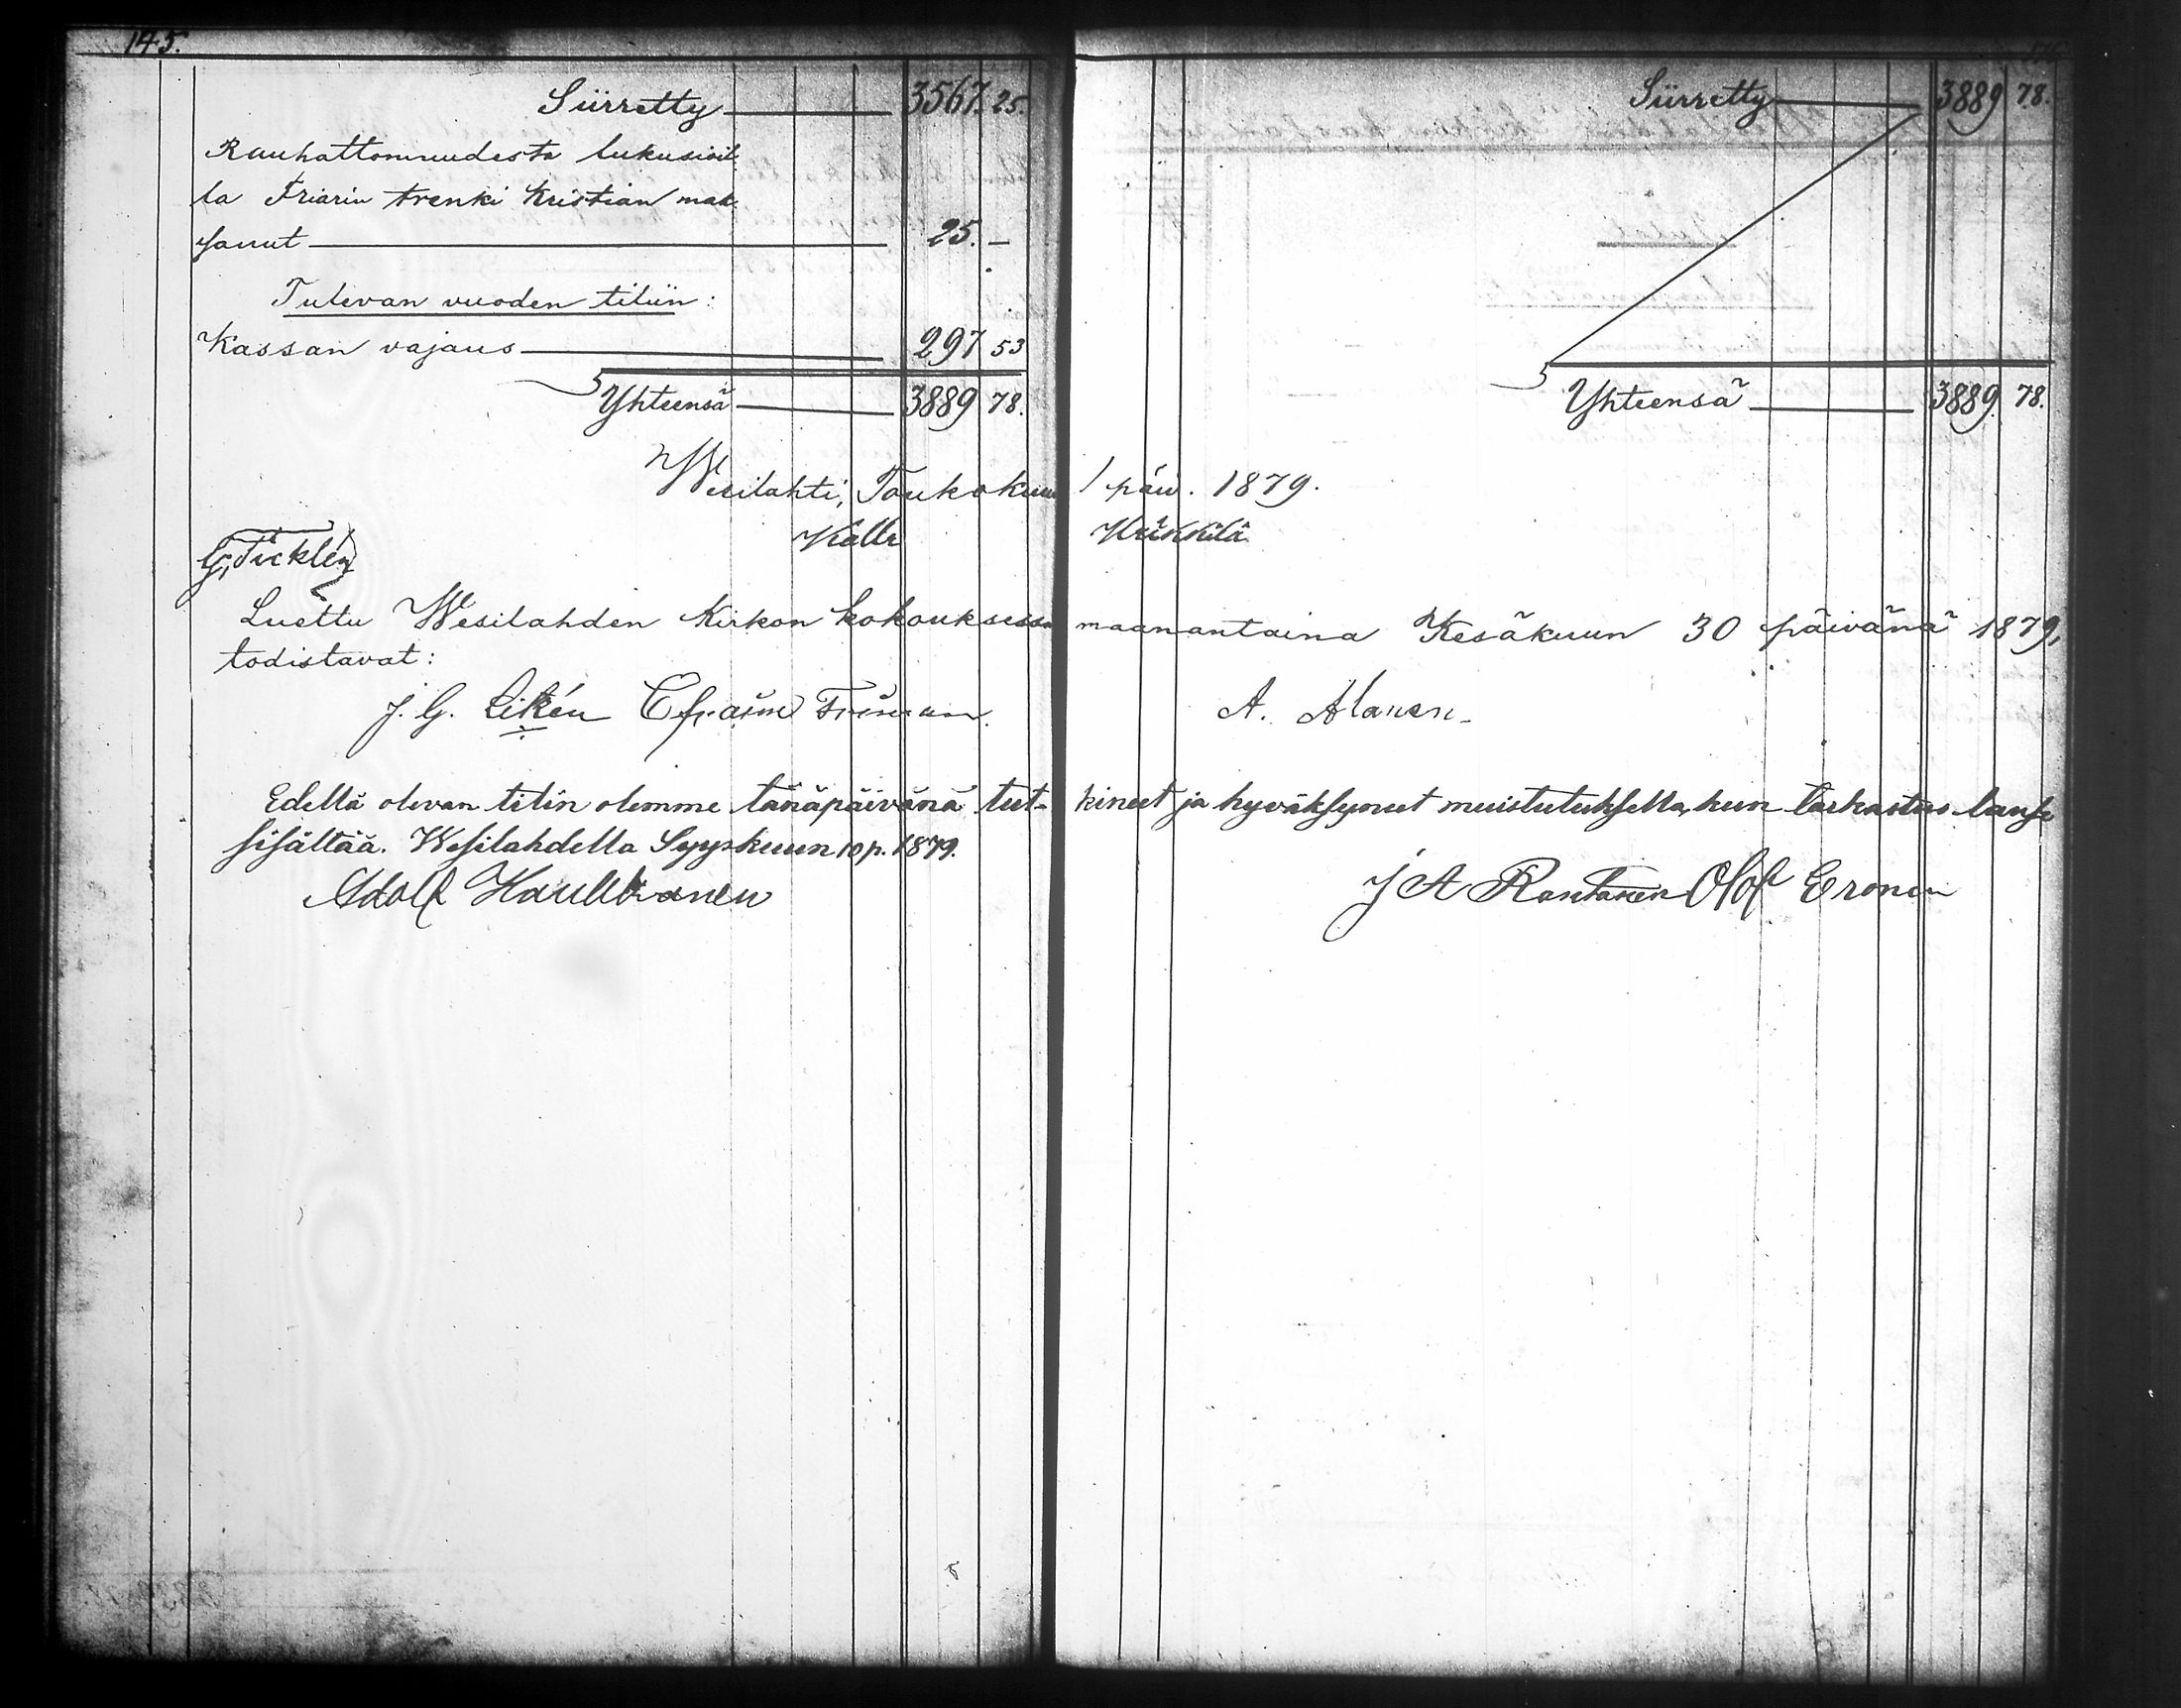 145.
Siirretty 3567. 25.
Rauhattomuudesta lukusioil-
la Friarin trenki Kristian mak-
sanut 25. —
Tulevan vuoden tiliin:
Kassan vajaus 297 53
Yhteensä 3889 78.
Siirretty 3889 78.
Yhteensä 3889. 78.
Wesilahti, Toukokuun 1 päiv. 1879.
Kalle Heikkilä
Luettu Wesilahden Kirkon kokouksessa maanantaina Kesäkuun 30 päivänä 1879,
todistavat:
J. G. Efraim A. Alanen.
Edellä olevan tilin olemme tänäpäivänä tut- kineet ja hyväksyneet muistutuksella, kun tarkastus lause
sisältää. Wesilahdella Syyskuun 10 p. 1879.
Adolf J A Rantanen Olof Eronen